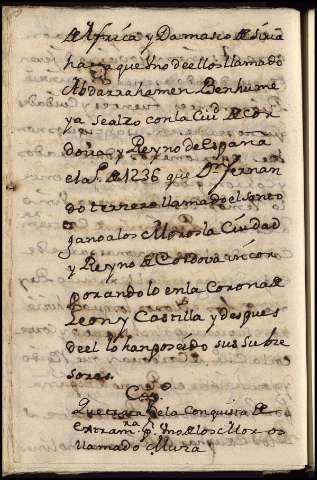 de Africa y Damasco de Siria
hasta que Vno de ellos llamado
Abdarrahamen Benhume
ya se alzo con la Ciud de Cor
doua y Reyno de España
el aº de 1236 que Dn fernan
do tercero llamado el santo
gano a los Moros la Ciudad
y Reyno de Cordova incor
porandolo en la Corona de
Leon y Castilla y despues
de el lo han poseido sus subce
sores.
Capº
Que trata de la Conquista de
extramra pr Vno de los Moros
llamado Muza